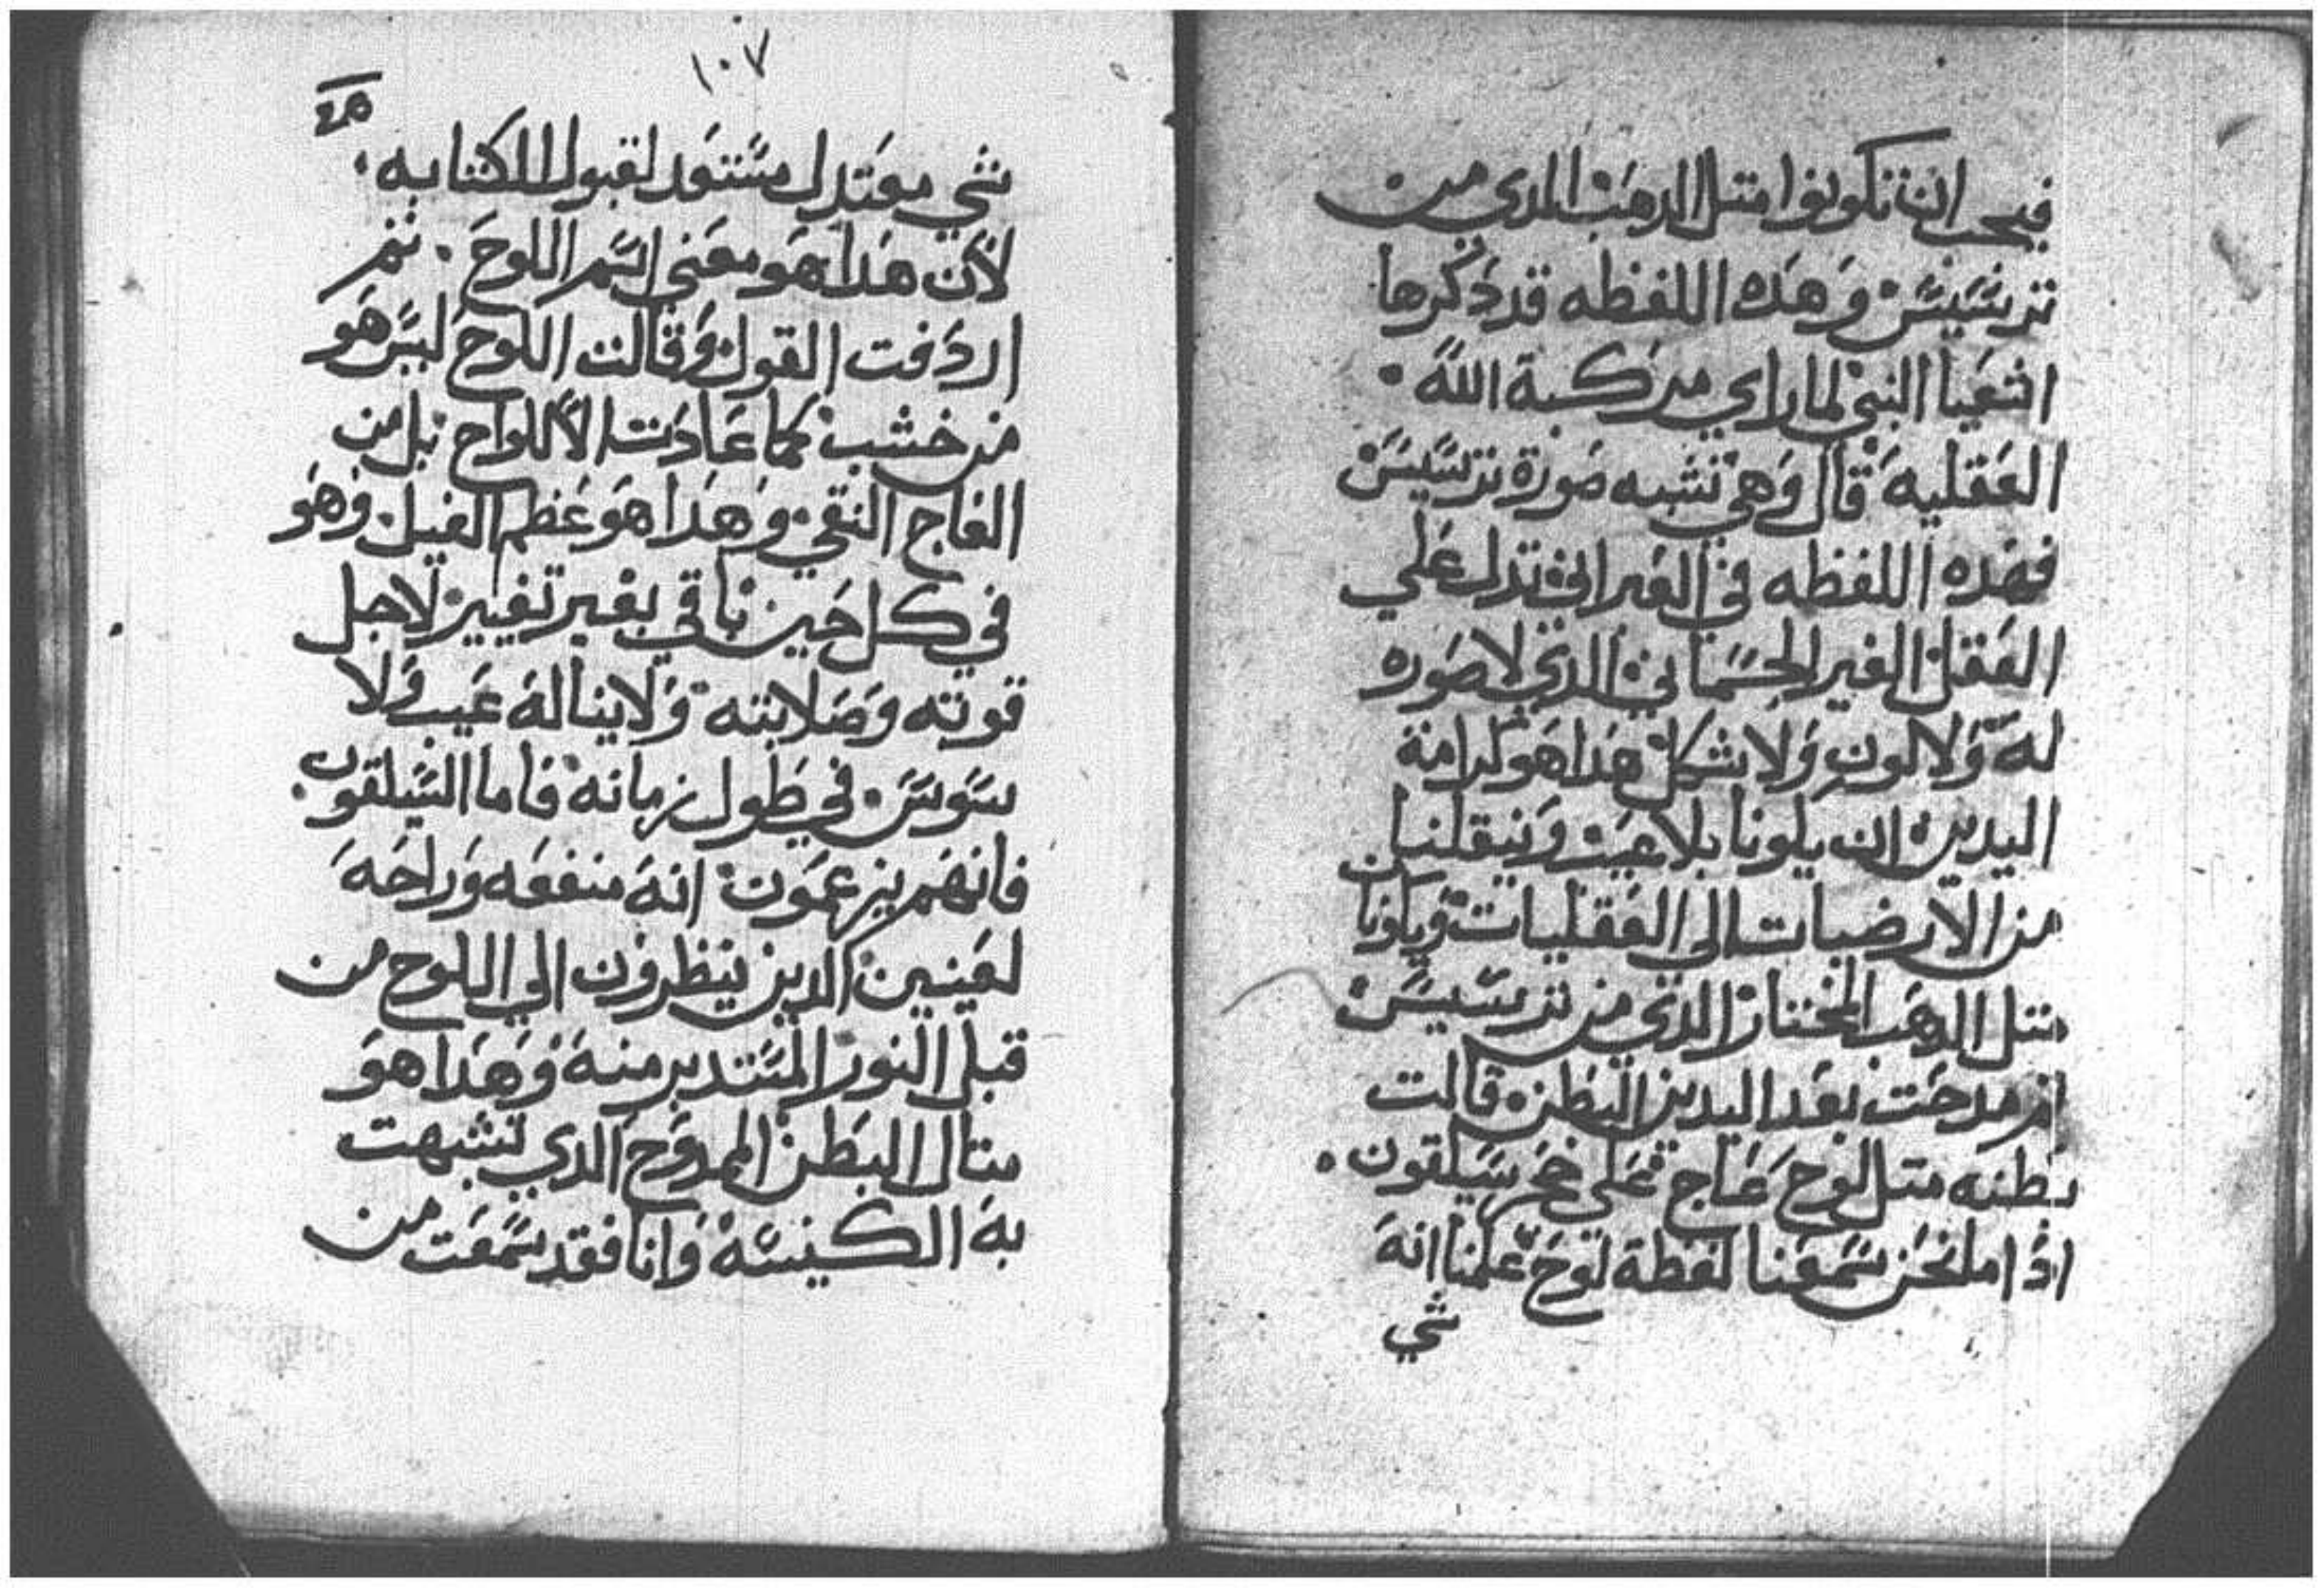 فيجب ان تكونوا متل الدهب الدي من
ترسيس وهده اللفظه قد ذكرها
اشعيا النبي لما راي مركبة الله
العقليه قال وهي تشبه صورة ترسيس
فهده اللفظه في العبراني تدل علي
العقل الغير الجسماني الدي لا صوره
له ولا لون ولا شكل هدا هو كرامة
اليدين ان يكونا بلا عيب وينقلنا من
الارضيات الى العقليات ويكونا
متل الدهب المختار الدي من ترسيس
تم مدحت بعد اليدين البطن قالت
بطنه متل لوح عاج على حجر سيلقون
اذا ما نحن سمعنا لفظة لوح علمنا انه
شي
١٠٧
شي معتدل مستعد لقبول الكتابه
لأن هدا هو معني اسم اللوح . تم
اردفت القول وقالت اللوح ليس هو
من خشب كما عادت الألواح بل من
العاج النقي وهدا هو عظم الفيل وهو
في كل حين باقي بغير تغيير لاجل
قوته وصلابته ولا يناله عيب ولا
سوس في طول زمانه فاما السيلقون
فانهم يزعمون انه منفعه وراحه
لعينين الدين ينظرون الي اللوح من
قبل النور المستدير منه وهدا هو
متال البطن الممدوح الدي تشبهت
به الكنيسه وانا فقد سمعت من